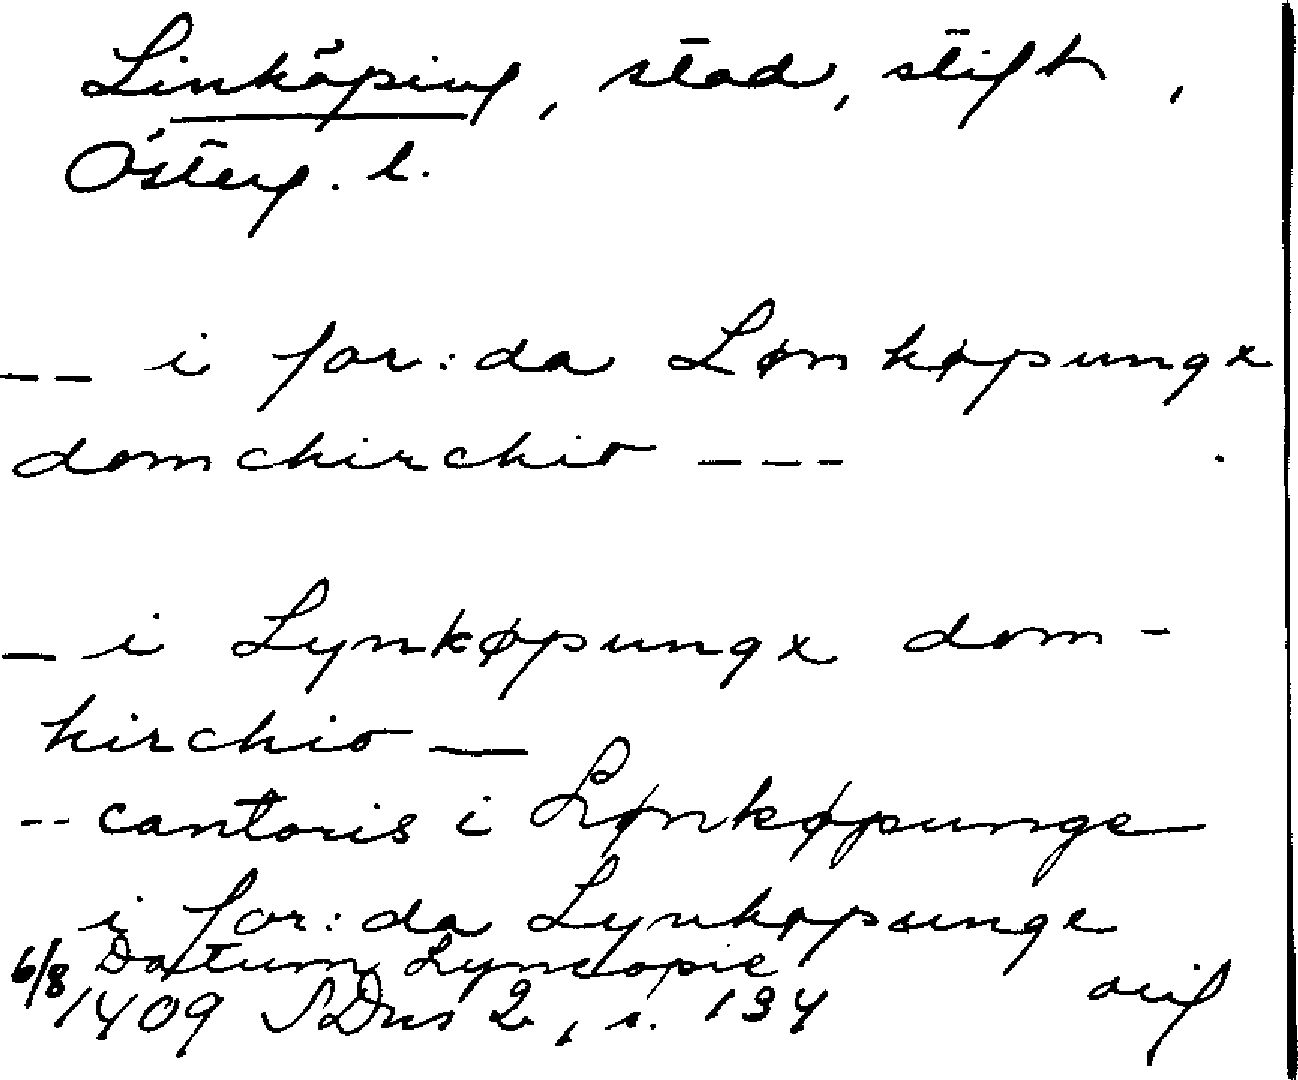 Linköping, stad, stift,
Österg. l.
-- i for:da Lønkøpungx
domchirchio ---
- i Lynkøpungx dom-
kirchio —
-- cantoris i Lønkøpunge
i for:da Lynkøpunge
6/8 Datum Lyncopie
1409 SDns 2, s. 134 orig